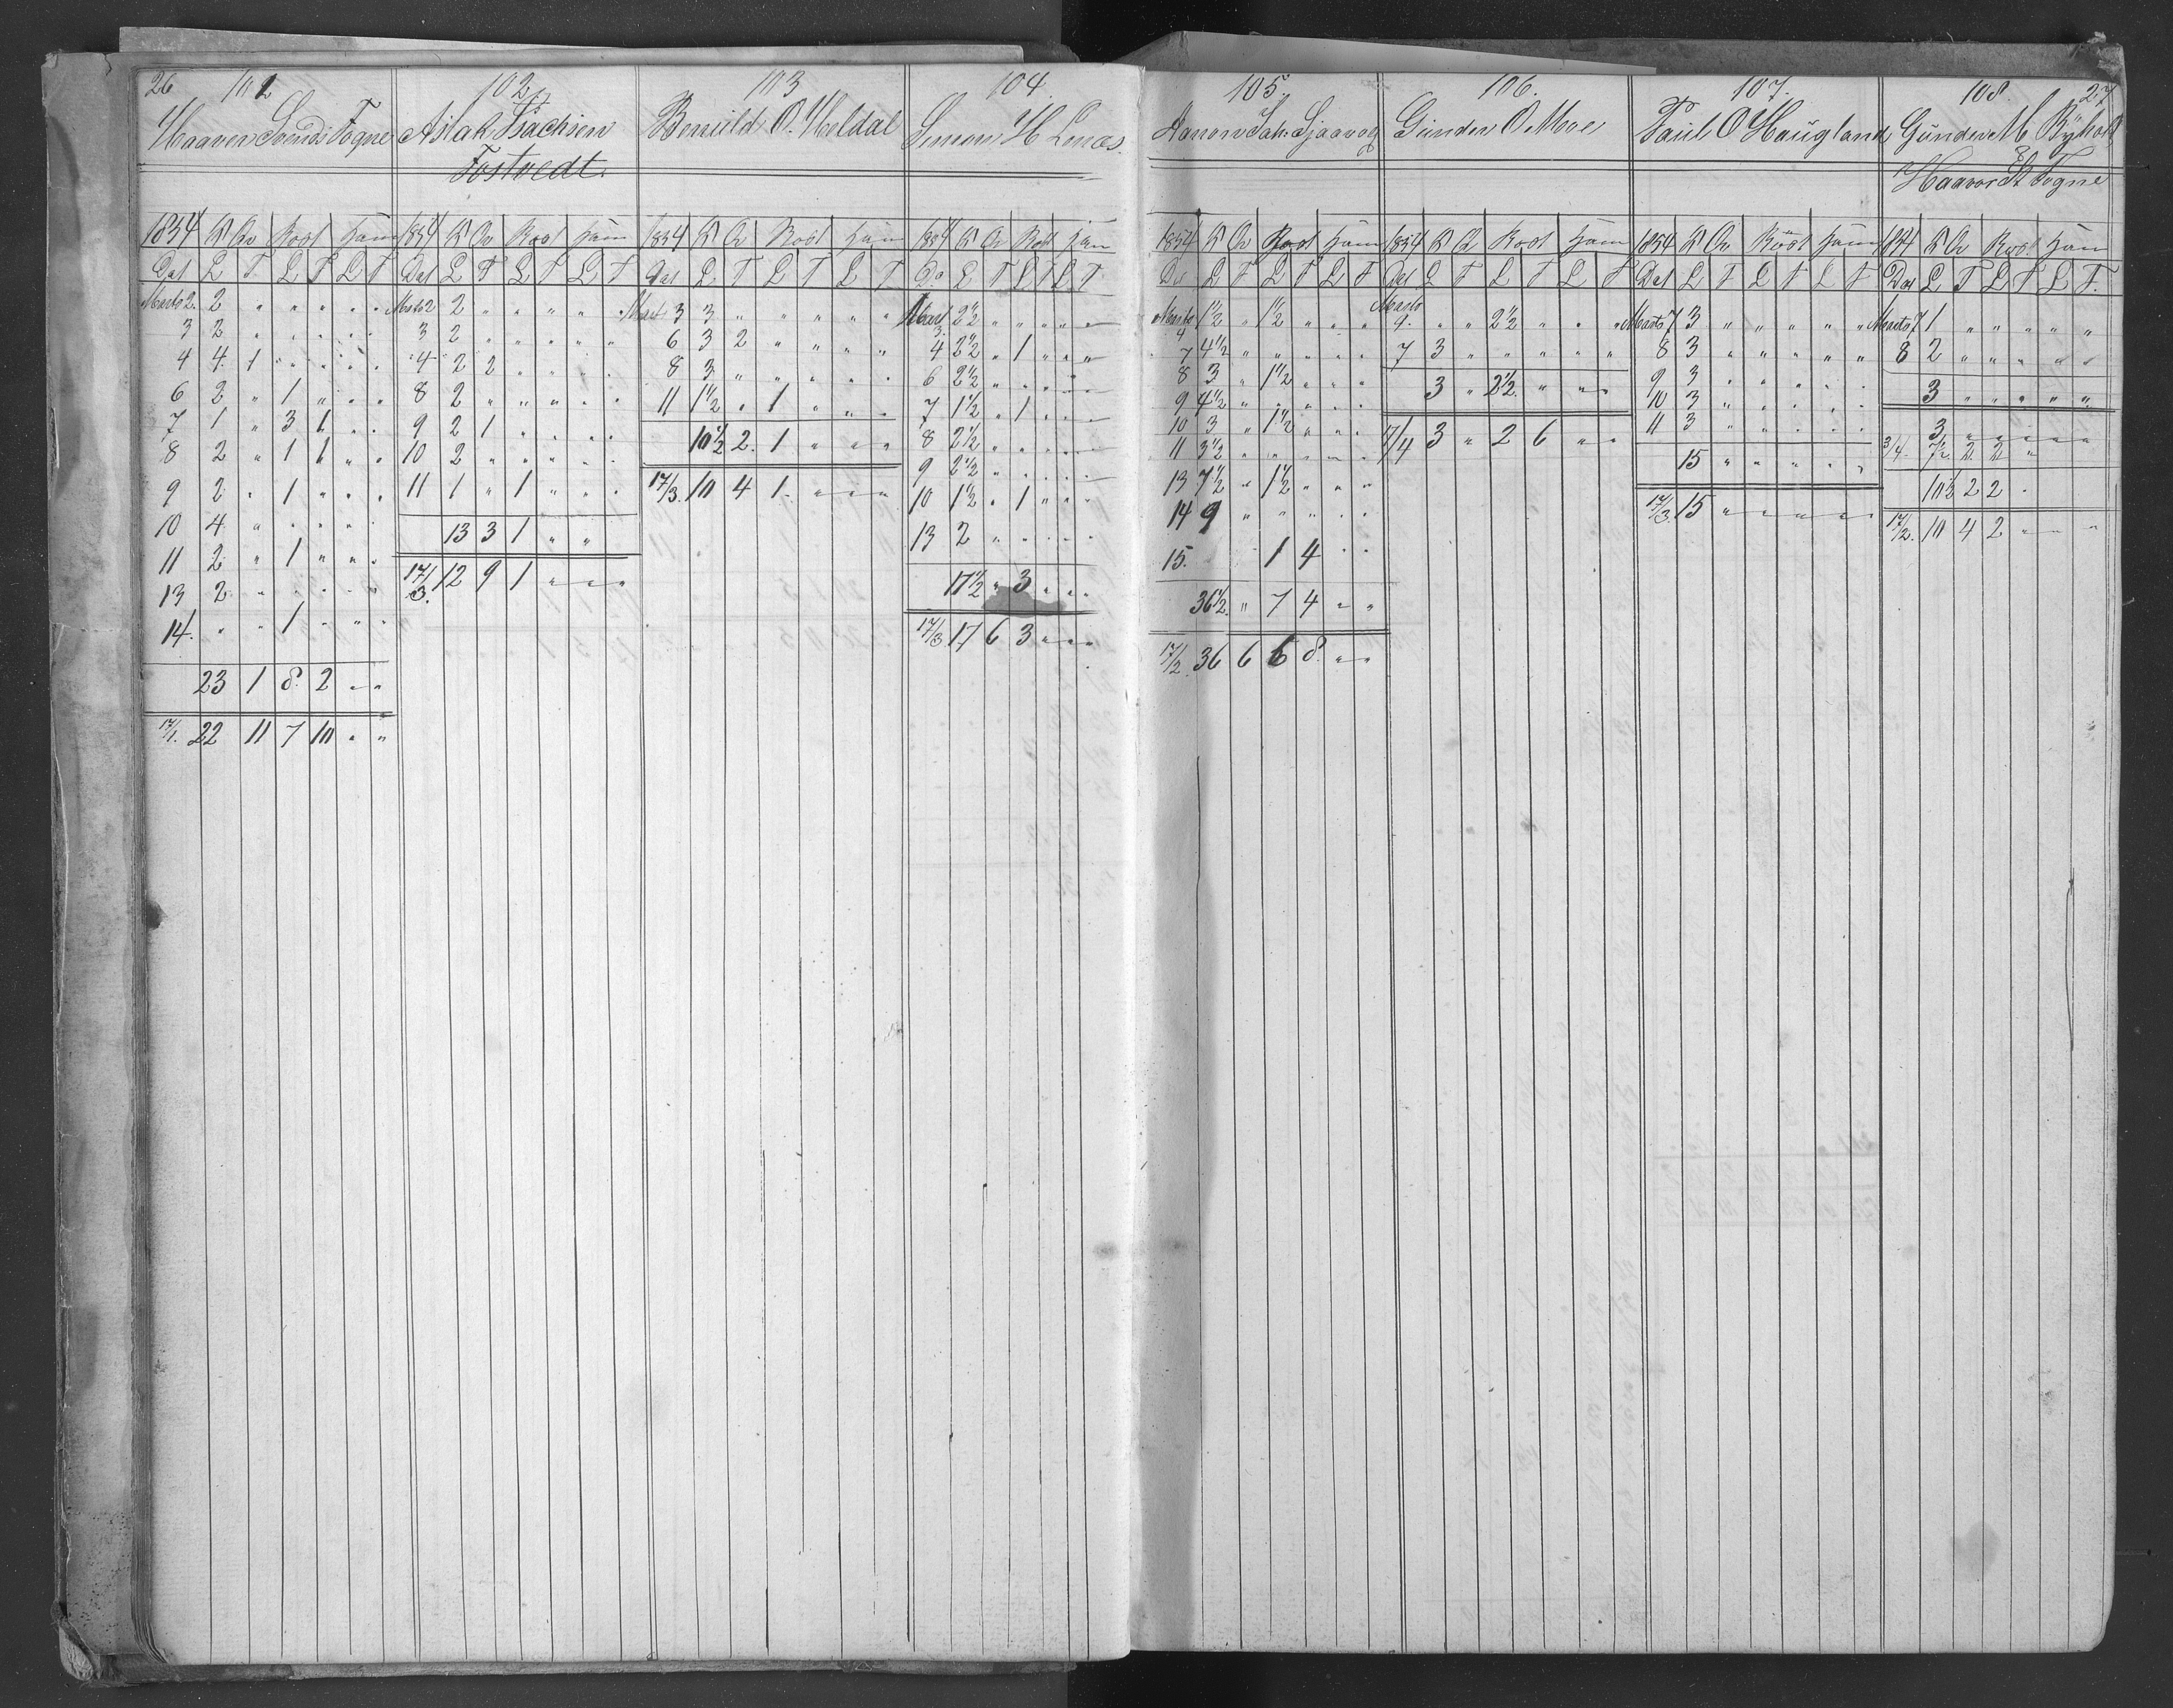 26 101
Haaven Svends Fogne
1854 K Qv Rool Ham
Dat L T L T L T
Marts 2 2 " " " " "
3 2 " " " " "
4 4 1 " " " "
6 2 " 1 " " "
7 1 " 3 1 " "
8 2 " 1 1 " "
9 2 " 1 " " "
10 4 " " " " "
11 2 " 1 " " "
13 2 " " " " "
14. " " 1 " " "
23 1 8 2 " "
17/1. 22 11 7 10 " "
102
Aslak Isachsen
Tostvedt.
1854 K Qv Rool Ham
Dat L T L T L T
Marts 2 2 " " " " "
3 2 " " " " "
4 2 2 " " " "
8 2 " " " " "
9 2 1 " " " "
10 2 " " " " "
11 1 " 1 " " "
13 3 1 " "
17/3. 12 9 1 " " "
103
Benuld O. Heldal
1854 K Q Rool Ham
Dat L T L T L T
Mart 3 3 " " " " "
6 3 2 " " " "
8 3 " " " " "
11 1 1/2 " 1 " " "
10 1/2 2 1 " " "
17/3. 10 4 1 " " "
104.
Simon H Lenæs.
1854 K Qv Rool Ham
Da L T L T L T
Mart 3. 2 1/2 " " " " "
4 2 1/2 " 1 " " "
6 2 1/2 " " " " "
7 1 1/2 " 1 " " "
8 2 1/2 " " " " "
9 2 1/2 " " " " "
10 1 1/2 " 1 " " "
13 2 " " " " "
17 1/2 " 3 " " "
17/3 17 6 3 " " "
105.
Aanon Jak. Sjaavog
1854 K Qv Rool Ham
Da L T L T L T
Marts 4 1 1/2 " 1/2 " " "
7 4 1/2 " " " " "
8 3 " 1 1/2 " " "
9 4 1/2 " " " " "
10 3 " 1 1/2 " " "
11 3 1/2 " " " " "
13 7 1/2 " 1 1/2 " " "
14 9 " " " " "
15. 1 4 " "
36 1/2. " 7 4 " "
17/2. 36 6 6 8 " "
106.
Gunder O Moe
1854 K Q Rool Ham
Dat L T L T L T
Marts 4. " " 2 1/2 " " "
7 3 " " " " "
3 " 2 1/2 " " "
7/4 3 " 2 6 " "
107.
Paul O Haugland
1854 K Qv Rool Ham
Dat L T L T L T
Marts 7 3 " " " " "
8 3 " " " " "
9 3 " " " " "
10 3 " " " " "
11 3 " " " " "
15 " " " " "
17/3. 15 " " " " "
108. 27
Gunder M Ryholt
Haavor St Fogne
1854 K Qv Rool Ham
Dat L T L T L T.
Marts 7 1 " " " " "
8 2 " " " " "
3 " " " " "
3 " " " " "
3/4. 7 1/2 2 2 "
10 1/2 2 2 "
17/2. 10 4 2 " " "